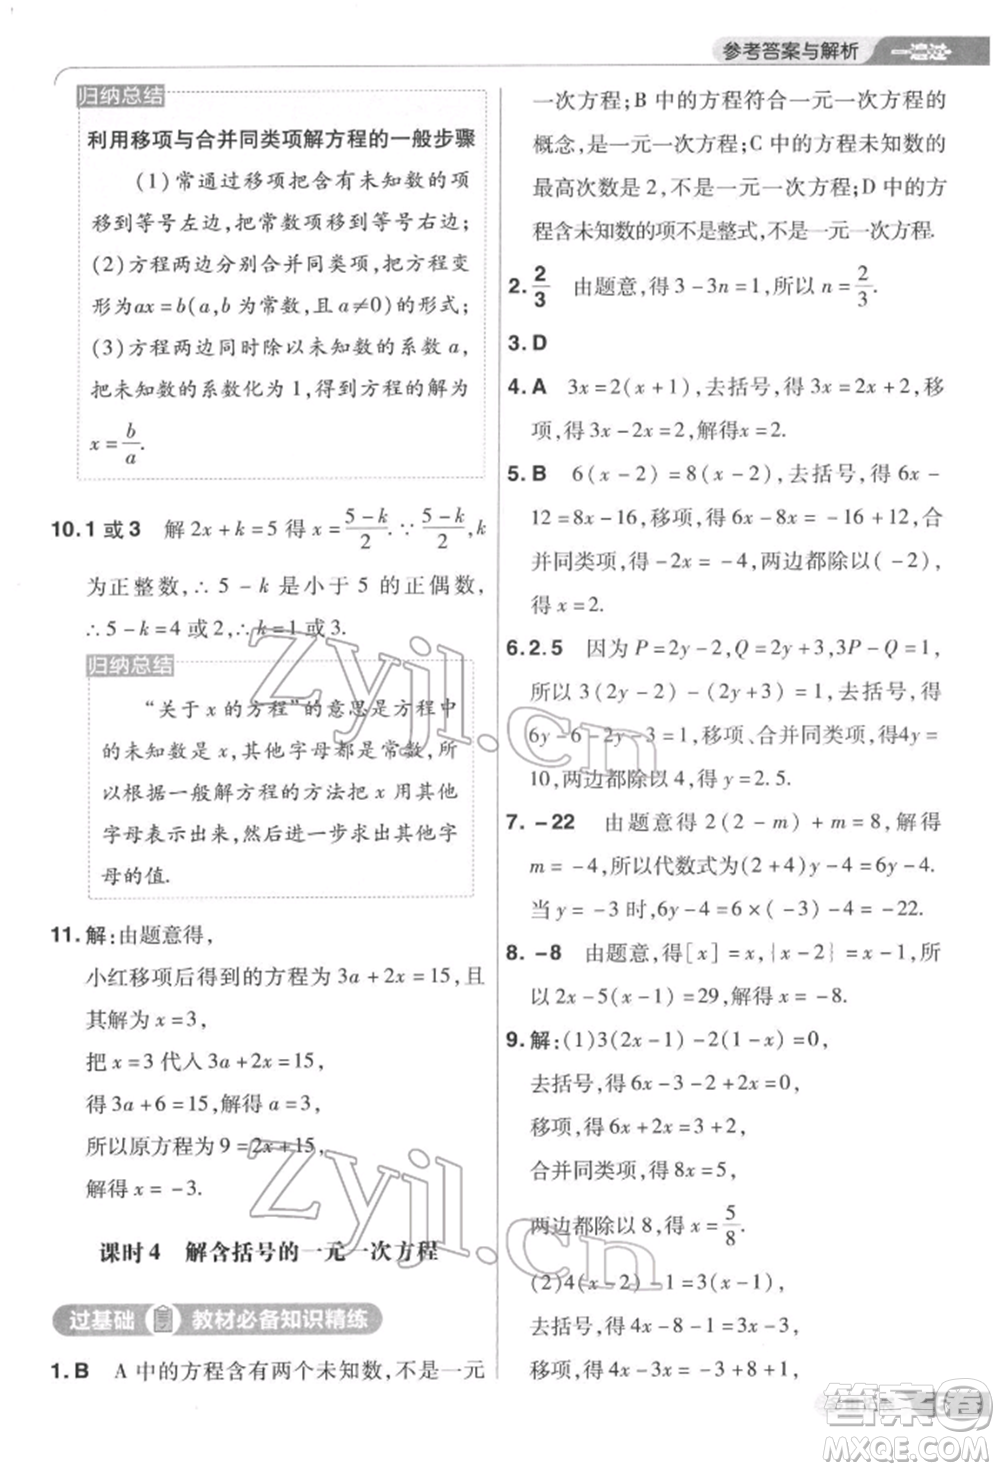 参考答案与解析 一遍过
归纳总结
利用移项与合并同类项解方程的一般步骤
(1)常通过移项把含有未知数的项
移到等号左边,把常数项移到等号右边;
(2)方程两边分别合并同类项,把方程变
形为ax=b(a,b为常数,且a≠0)的形式;
(3)方程两边同时除以未知数的系数a,
把未知数的系数化为1,得到方程的解为
x=b/a.
10.1或3 解2x+k=5得x=(5-k)/2.∵(5-k)/2,k
为正整数,∴5-k是小于5的正偶数,
∴5-k=4或2,∴k=1或3.
归纳总结
“关于x的方程”的意思是方程中
的未知数是x,其他字母都是常数,所
以根据一般解方程的方法把x用其他
字母表示出来,然后进一步求出其他字
母的值.
11.解:由题意得,
小红移项后得到的方程为3a+2x=15,且
其解为x=3,
把x=3代入3a+2x=15,
得3a+6=15,解得a=3,
所以原方程为9=2x+15,
解得x=-3.
课时4 解含括号的一元一次方程
过基础 教材必备知识精练
1.B A中的方程含有两个未知数,不是一元
一次方程;B中的方程符合一元一次方程的
概念,是一元一次方程;C中的方程未知数的
最高次数是2,不是一元一次方程;D中的方
程含未知数的项不是整式,不是一元一次方程.
2.2/3 由题意,得3-3n=1,所以n=2/3.
3.D
4.A 3x=2(x+1),去括号,得3x=2x+2,移
项,得3x-2x=2,解得x=2.
5.B 6(x-2)=8(x-2),去括号,得6x-
12=8x-16,移项,得6x-8x=-16+12,合
并同类项,得-2x=-4,两边都除以(-2),
得x=2.
6.2.5 因为P=2y-2,Q=2y+3,3P-Q=1,
所以3(2y-2)-(2y+3)=1,去括号,得
6y-6-2y-3=1,移项、合并同类项,得4y=
10,两边都除以4,得y=2.5.
7.-22 由题意得2(2-m)+m=8,解得
m=-4,所以代数式为(2+4)y-4=6y-4.
当y=-3时,6y-4=6×(-3)-4=-22.
8.-8 由题意,得[x]=x,{x-2}=x-1,所
以2x-5(x-1)=29,解得x=-8.
9.解:(1)3(2x-1)-2(1-x)=0,
去括号,得6x-3-2+2x=0,
移项,得6x+2x=3+2,
合并同类项,得8x=5,
两边都除以8,得x=5/8.
(2)4(x-2)-1=3(x-1),
去括号,得4x-8-1=3x-3,
移项,得4x-3x=-3+8+1,
Zyjl.cn
Zyjl.cn
答案卷
MXQE.COM